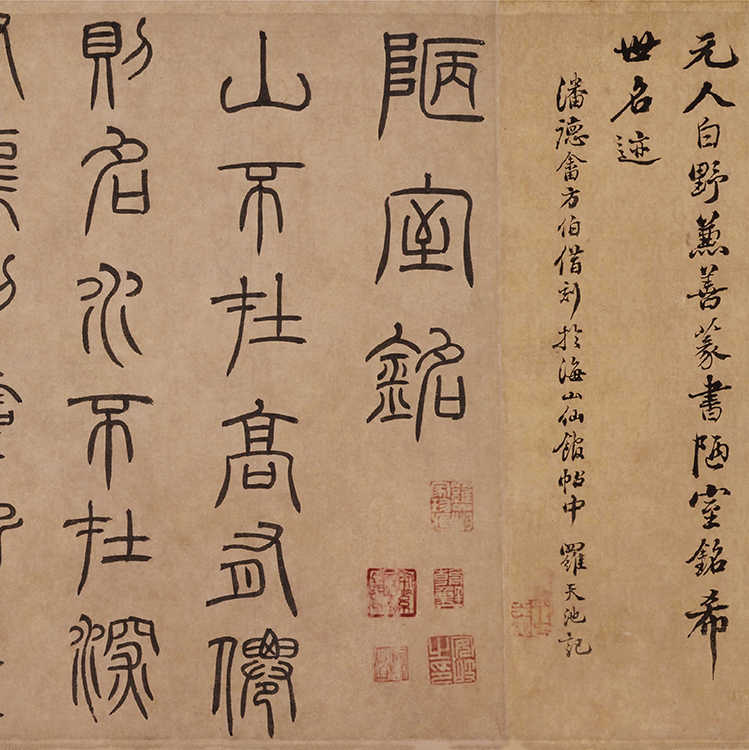 元人白野兼善篆書陋室銘希
世名迹
潘德畬方伯借刻於海山仙館帖中 羅天池記
陋室銘
山不在高有僊
則名水不在深